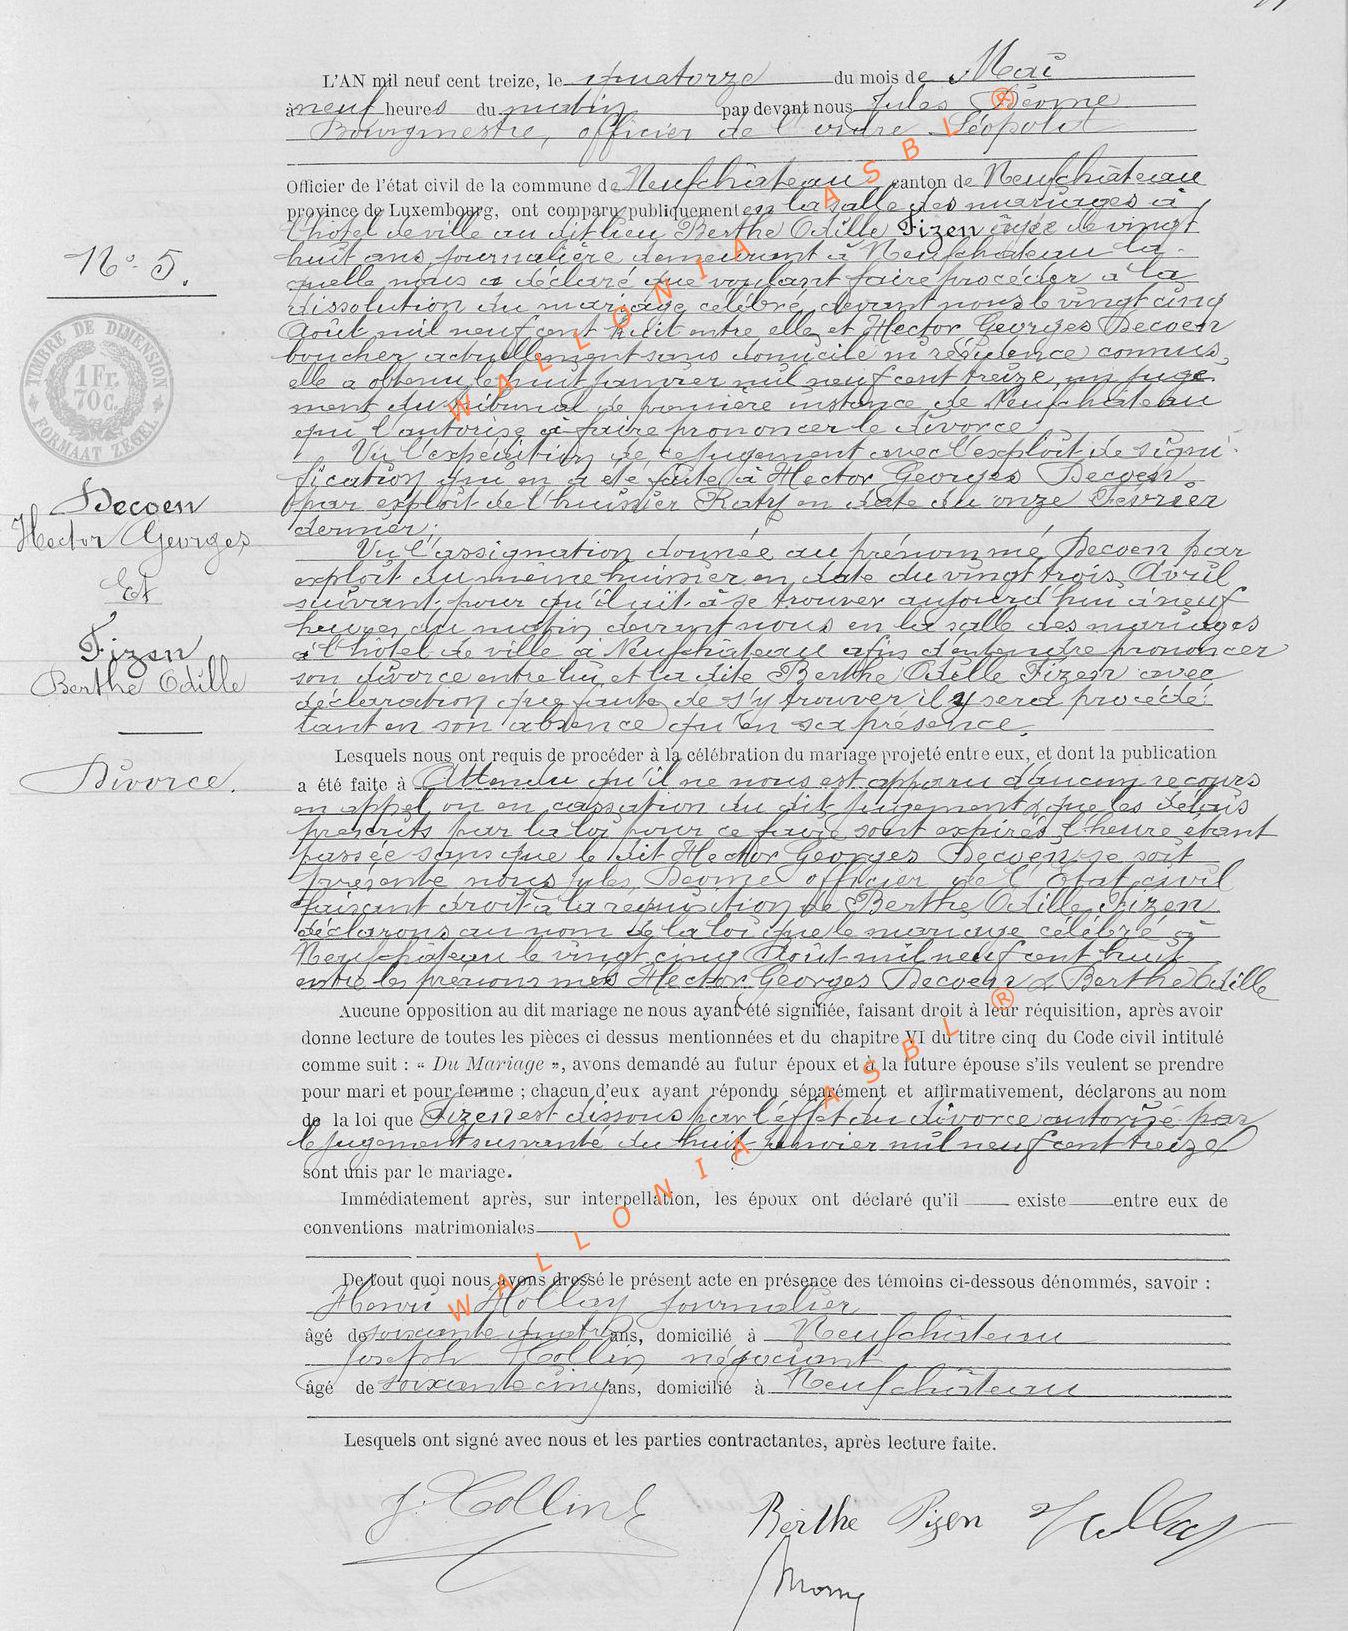 L'AN mil neuf cent treize, le quatorze du mois de Mai
à neuf heures du matin par devant nous Jules Deome
Bourgmestre, officier de l'ordre Léopold
Officier de l'état civil de la commune de Neufchâteau canton de Neufchâteau
province de Luxembourg, ont comparu publiquement en la salle des mariages à
l'hôtel de ville au dit lieu Berthe Odille Fizen âgée de vingt
N° 5.
huit ans, journalière demeurant à Neufchâteau la-
quelle nous a déclaré que voulant faire procéder à la
dissolution du mariage célébré devant nous le vingt cinq
Août mil neuf cent huit entre elle et Hector Georges Decoen
boucher actuellement sans domicile ni résidence connus,
elle a obtenu le huit Janvier mil neuf cent treize, un juge
ment du tribunal de première instance de Neufchâteau
qui l'autorise à faire prononcer le divorce
TIMBRE DE DIMENSION
1 Fr.
70 C.
FORMAAT ZEGEL
Vu l'expédition de ce jugement avec l'exploit de signi-
fication qui en a été faite à Hector Georges Decoen
par exploit de l'huissier Raty en date du onze Février
dernier;
Decoen
Hector Georges
Et
Fizen
Berthe Odille
Divorce.
Vu l'assignation donnée au prénommé Decoen par
exploit du même huissier en date du vingt trois Avril
suivant, pour qu'il ait à se trouver aujourd'hui à neuf
heures du matin devant nous en la salle des mariages
à l'hôtel de ville à Neufchâteau afin d'entendre prononcer
son divorce entre lui et la dite Berthe Odille Fizen avec
déclaration que faute de s'y trouver il y sera procédé
tant en son absence qu'en sa présence.
Lesquels nous ont requis de procéder à la célébration du mariage projeté entre eux, et dont la publication
a été faite à Attendu qu'il ne nous est apparu d'aucun recours
en appel ou en cassation du dit jugement & que les délais
prescrits par la loi pour ce faire sont expirés, l'heure étant
passée sans que le dit Hector Georges Decoen se soit
présenté nous Jules Deome officier de l'Etat civil
faisant droit à la réquisition de Berthe Odille Fizen
déclarons au nom de la loi que le mariage célébré à
Neufchâteau le vingt cinq Août mil neuf cent huit
entre les prénommés Hector Georges Decoen & Berthe Odille
Aucune opposition au dit mariage ne nous ayant été signifiée, faisant droit à leur réquisition, après avoir
donne lecture de toutes les pièces ci dessus mentionnées et du chapitre VI du titre cinq du Code civil intitulé
comme suit : « Du Mariage », avons demandé au futur époux et à la future épouse s'ils veulent se prendre
pour mari et pour femme ; chacun d'eux ayant répondu séparément et affirmativement, déclarons au nom
de la loi que Fizen est dissous par l'effet du divorce autorisé par
le jugement susvanté du huit Janvier mil neuf cent treize
sont unis par le mariage.
Immédiatement après, sur interpellation, les époux ont déclaré qu'il existe entre eux de
conventions matrimoniales
De tout quoi nous avons dressé le présent acte en présence des témoins ci-dessous dénommés, savoir :
Henri Hollay journalier
âgé de soixante quatre ans, domicilié à Neufchâteau
Joseph Collin négociant
âgé de soixante cinq ans, domicilié à Neufchâteau
Lesquels ont signé avec nous et les parties contractantes, après lecture faite.
J. Collin
Berthe Fizen
Hollay
WALLONIA ASBL ®
WALLONIA ASBL ®